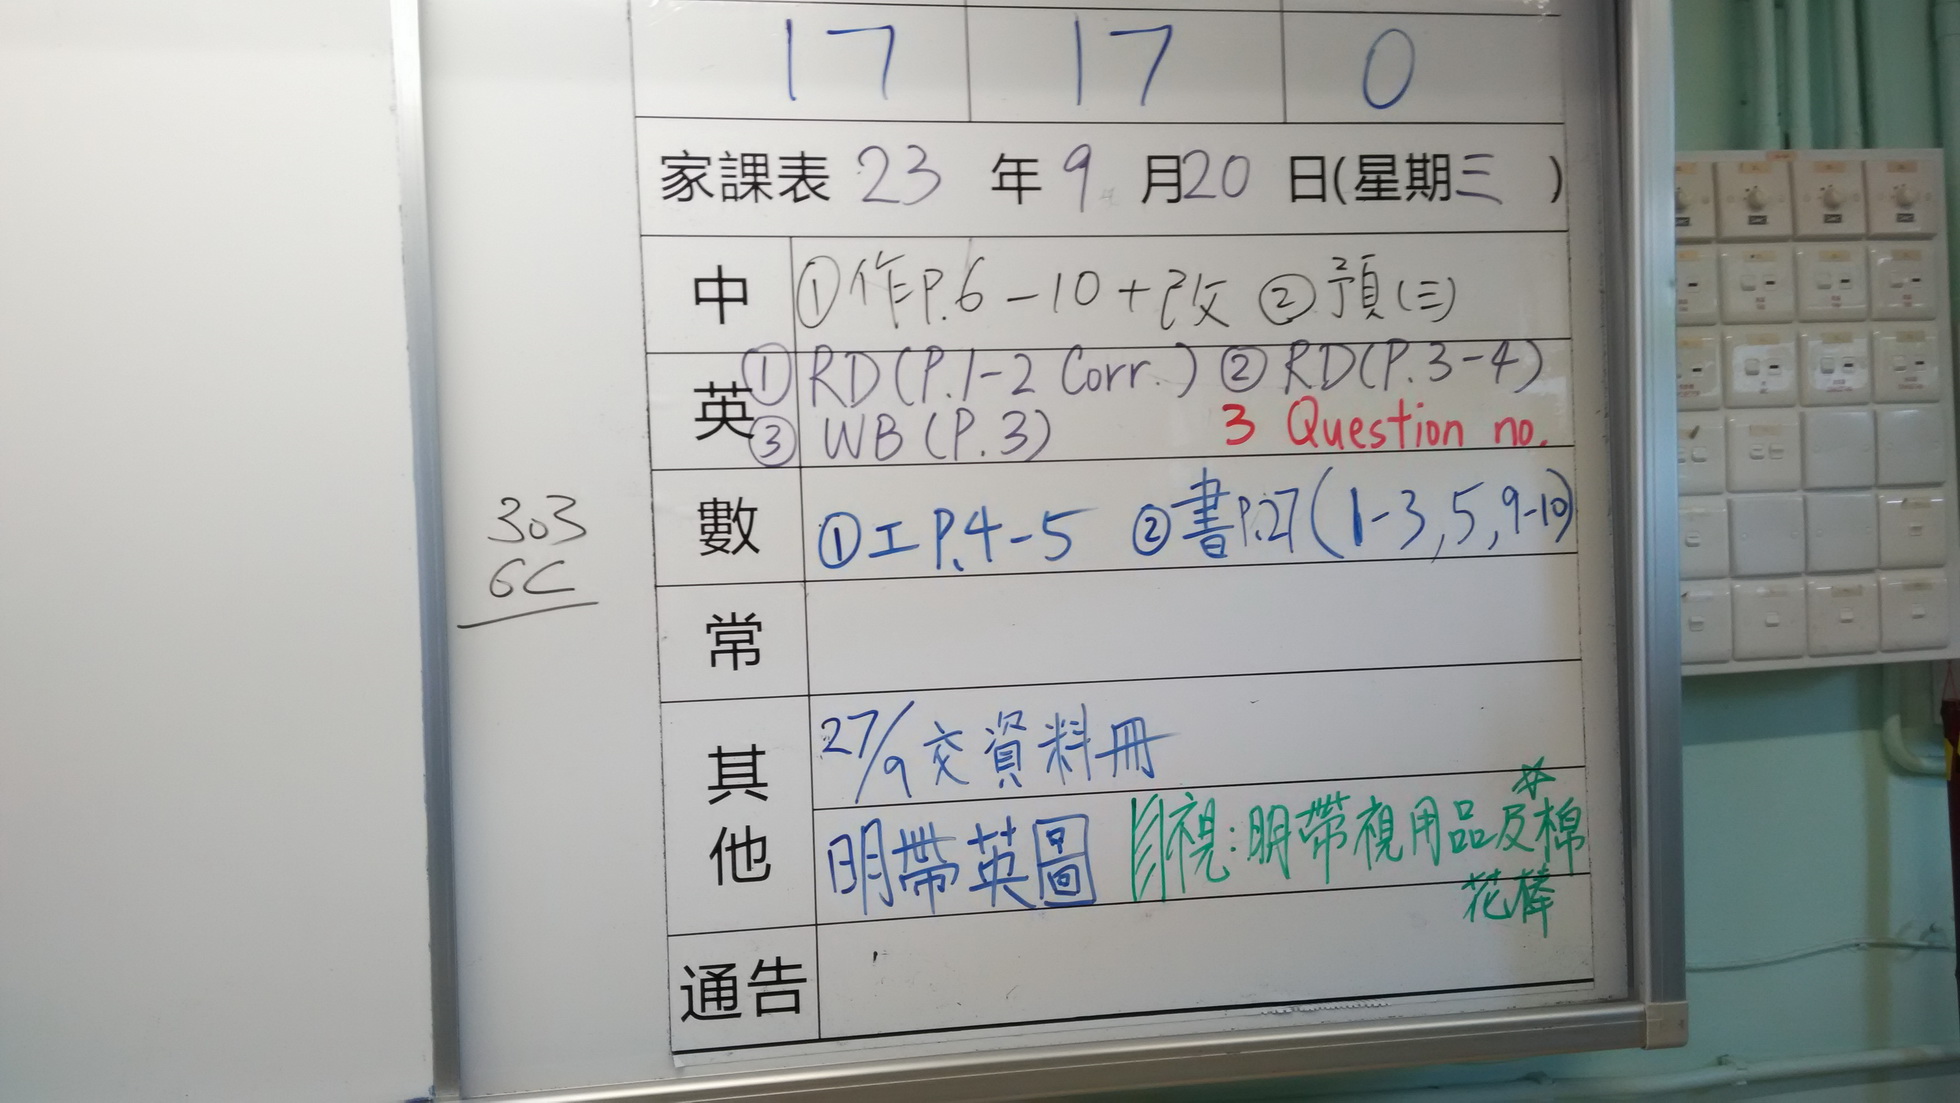 17 17 0
家課表 23 年 9 月 20 日(星期三)
中 ①作P.6-10+改 ②預(三)
英 ①RD(P.1-2 Corr.) ②RD(P.3-4)
③ WB(P.3) 3 Question no.
數 ①工P.4-5 ②書P.27(1-3,5,9-10)
303
6C
常
其他
27/9交資料冊
明帶英圖 視:明帶視用品及棉
花棒
通告